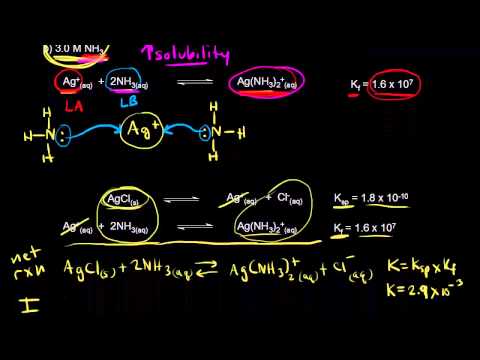 ) 3.0 M NH₃
↑solubility
Ag⁺(aq) + 2NH₃(aq) ⇌ Ag(NH₃)₂⁺(aq) Kf = 1.6 x 10⁷
LA LB
H H
H-N: Ag⁺ :N-H
H H
AgCl(s) ⇌ Ag⁺(aq) + Cl⁻(aq) Ksp = 1.8 x 10⁻¹⁰
Ag⁺(aq) + 2NH₃(aq) ⇌ Ag(NH₃)₂⁺(aq) Kf = 1.6 x 10⁷
net
rxn AgCl(s) + 2NH₃(aq) ⇌ Ag(NH₃)₂⁺(aq) + Cl⁻(aq) K = Ksp x Kf
K = 2.9 x 10⁻³
I